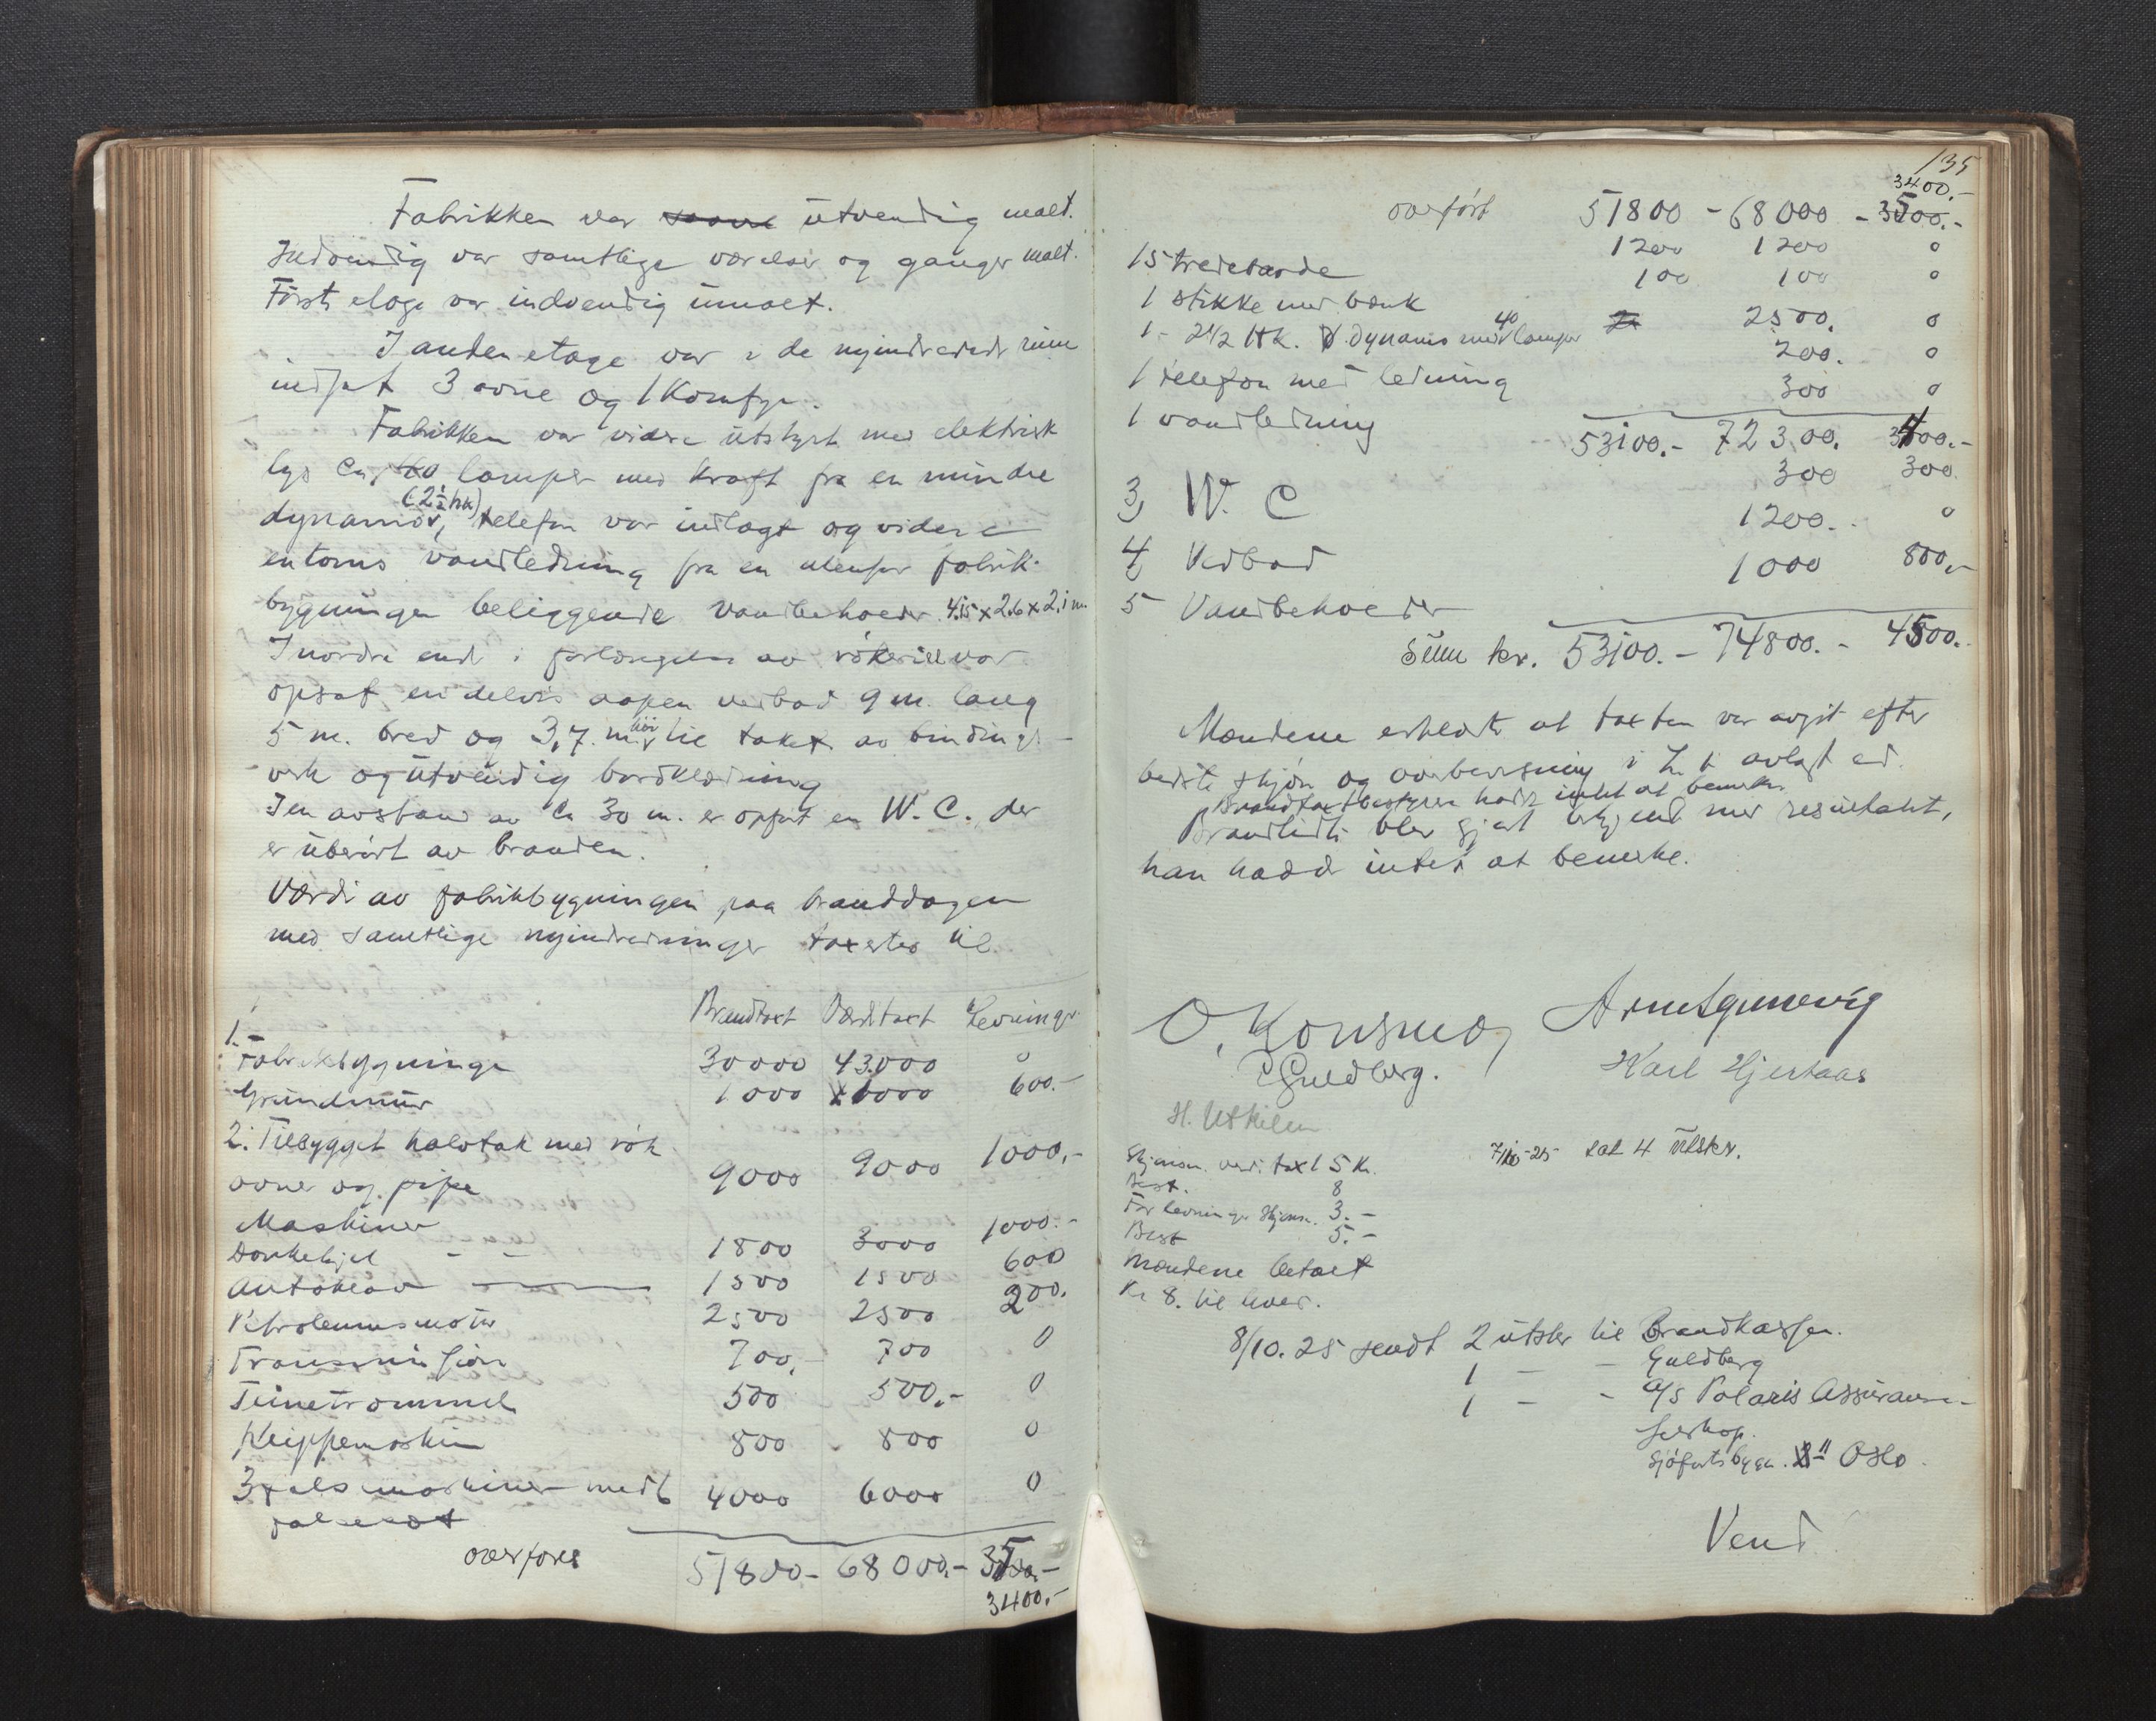 Fabrikken var utvendig malt.
Indvendig var samtlige værelser og ganger malt.
Første etage var indvendig umalt.
I anden etage var i de nyindredede rum
indsat 3 ovne og 1 Komfyr.
Fabrikken var videre utstyrt med elektrisk
lys ca. 40 lamper med kraft fra en mindre
dynamo (2½ hk), telefon var indlagt og videre
en toms vandledning fra en utenfor fabrik-
bygningen beliggende vandbeholder 4.15 x 2.6 x 2.1 m.
I nordre ende i forlængelse av røkeriet var
opsat en delvis aapen vedbod 9 m. lang
5 m. bred og 3,7 m. høi til taket av bindings-
verk og utvendig bordklædning
I en avstand av ca 30 m. er opført en W.C. der
er uberørt av branden.
Værdi av fabrikbygningen paa branddagen
med samtlige nyindredninger taxertes til
Brandtaxt Værditaxt Levninger
1.
Fabrikbygningen 30000 43000 0
Grundmur 1000 1000 600.-
2. Tilbygget halvtak med røk
ovner og pipe 9000 9000 1000,-
Maskiner
Donkekjel - - 1800 3000 1000.-
Autoklav 1500 1500 600
Petroleumsmotor 2500 2500 200.
Transmission 700,- 700 0
Tinetrommel 500 500.- 0
Klippemaskin 800 800 0
3 falsmaskiner med 6 4000 6000 0
overføres 51800.- 68000.- 3500.-
3400.-
135
3400.-
overført 51800 - 68000 - 3500.-
15 1200 1200 0
1 stikke med bænk 100 100 0
1 - 2½ Hk. dynamo med 40 lamper 2500. 0
1 telefon med ledning 200. 0
1 vandledning 300 0
53100.- 72300. 3400.-
3, W. C 300 300
4, Vedbod 1200.- 0
5 Vandbeholder 1000 800,-
Sum kr. 53100.- 74800.- 4500.
Mændene erklærte at taxten var avgit efter
bedste skjøn og overbevisning i h. t. avlagt ed.
Brandtaxtbestyrer hadde intet at bemerke
Brandlidte blev gjort bekjent med resultatet,
han hadde intet at bemerke.
O. Konsmo,
Guldberg. Karl Hjertaas
H. Utkilen
Skjønsm. verditaxt 5 Kr. 7/10-25 sat 4 utskr.
Best. 8
For levninger Skjønsm. 3.-
Best 5.-
Mændene betalt
Kr 8. til hver.
8/10. 25 sendt 2 utskr til Brandkassen.
1 - - Guldberg
1 - - A/S Polaris Assurance-
selskap.
Sjøfartsbygn. Oslo.
Vend